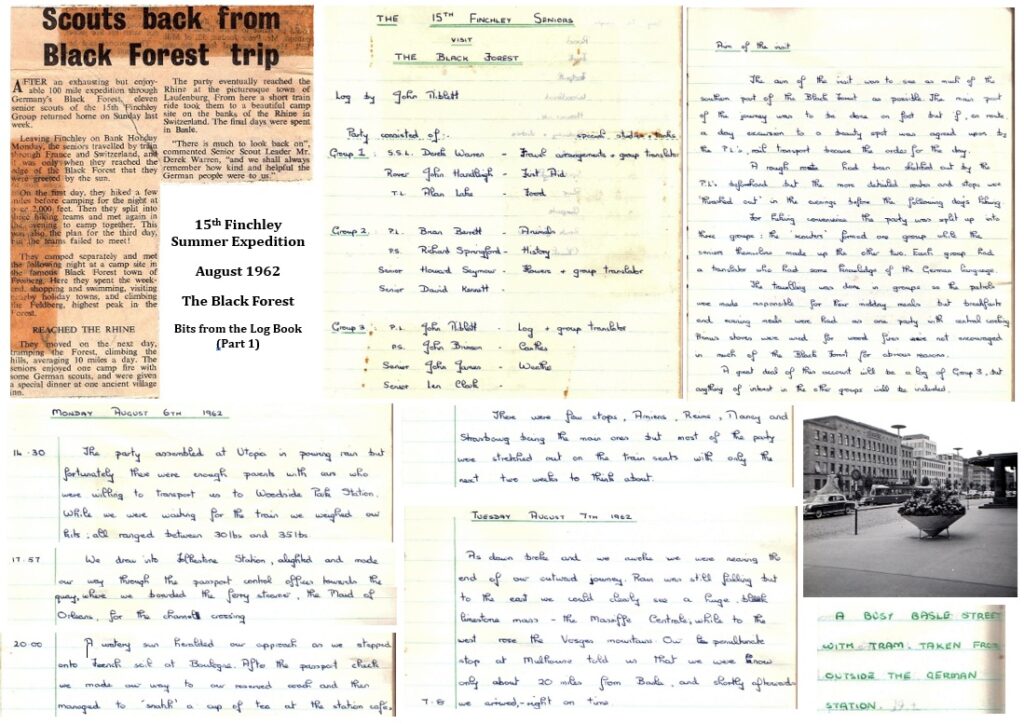 Scouts back from
Black Forest trip
AFTER an exhausting but enjoy-
able 100 mile expedition through
Germany's Black Forest, eleven
senior scouts of the 15th Finchley
Group returned home on Sunday last
week.
Leaving Finchley on Bank Holiday
Monday, the seniors travelled by train
through France and Switzerland, and
it was only when they reached the
edge of the Black Forest that they
were greeted by the sun.
On the first day, they hiked a few
miles before camping for the night at
over 2,000 feet. Then they split into
hiking teams and met again in
the evening to camp together. This
was also the plan for the third day,
but the teams failed to meet!
They camped separately and met
the following night at a camp site in
the famous Black Forest town of
Freiberg. Here they spent the week-
end, shopping and swimming, visiting
nearby holiday towns, and climbing
the Feldberg, highest peak in the
Forest.
REACHED THE RHINE
They moved on the next day,
tramping the Forest, climbing the
hills, averaging 10 miles a day. The
seniors enjoyed one camp fire with
some German scouts, and were given
a special dinner at one ancient village
inn.
The party eventually reached the
Rhine at the picturesque town of
Laufenburg. From here a short train
ride took them to a beautiful camp
site on the banks of the Rhine in
Switzerland. The final days were spent
in Basle.
"There is much to look back on",
commented Senior Scout Leader Mr.
Derek Warren, "and we shall always
remember how kind and helpful the
German people were to us."
15th Finchley
Summer Expedition
August 1962
The Black Forest
Bits from the Log Book
(Part 1)
THE 15TH FINCHLEY SENIORS
VISIT
THE BLACK FOREST
Log by John Piblett
Party consisted of:- special studies + tasks
Group 1: S.S.L. Derek Warren - Travel arrangements + group translator
Rover John Handleigh - First Aid
T.L. Alan Lake - Food
Group 2: P.L. Brian Barrett - Animals
P.S. Richard Springford - History
Senior Howard Seymour - Flowers + group translator
Senior David Kennett -
Group 3: P.L. John Piblett - Log + group translator
P.S. John Brinson - Castles
Senior John James - Weather
Senior Len Clark -
Aim of the visit
The aim of the visit was to see as much of the
southern part of the Black Forest as possible. The main part
of the journey was to be done on foot but if, en route,
a day excursion to a beauty spot was agreed upon by
the P.L's, rail transport became the order for the day.
A rough route had been sketched out by the
P.L's beforehand but the more detailed routes and stops were
'thrashed out' in the evenings before the following day's hiking
For hiking convenience the party was split up into
three groups: the 'scouters' formed one group while the
seniors themselves made up the other two. Each group had
a translator who had some knowledge of the German language.
The travelling was done in groups so the patrols
were made responsible for their midday meals but breakfasts
and evening meals were had as one party with central cooking
Primus stoves were used for wood fires were not encouraged
in much of the Black Forest for obvious reasons.
A great deal of this account will be a log of Group 3, but
anything of interest in the other groups will be included.
MONDAY AUGUST 6TH 1962
14.30 The party assembled at Utopia in pouring rain but
fortunately there were enough parents with cars who
were willing to transport us to Woodside Park Station.
While we were waiting for the train we weighed our
kits; all ranged between 30lbs and 35lbs
17.57 We drew into Folkestone Station, alighted and made
our way through the passport control offices towards the
quay, where we boarded the ferry steamer, the Maid of
Orleans, for the channel crossing
20.00 A watery sun heralded our approach as we stepped
onto French soil at Boulogne. After the passport check
we made our way to our reserved coach and then
managed to 'snatch' a cup of tea at the station cafe.
There were few stops, Amiens, Reims, Nancy and
Strasbourg being the main ones but most of the party
were stretched out on the train seats with only the
next two weeks to think about.
TUESDAY AUGUST 7TH 1962
As dawn broke and we awoke we were nearing the
end of our outward journey. Rain was still falling but
to the east we could clearly see a huge
limestone mass - the Massiffe Centrale, while to the
west rose the Vosges mountains. Our penultimate
stop at Mulhouse told us that we were now
only about 20 miles from Basle, and shortly afterwards
7.8 we arrived,- right on time.
A BUSY BASLE STREET
WITH TRAM, TAKEN FROM
OUTSIDE THE GERMAN
STATION.